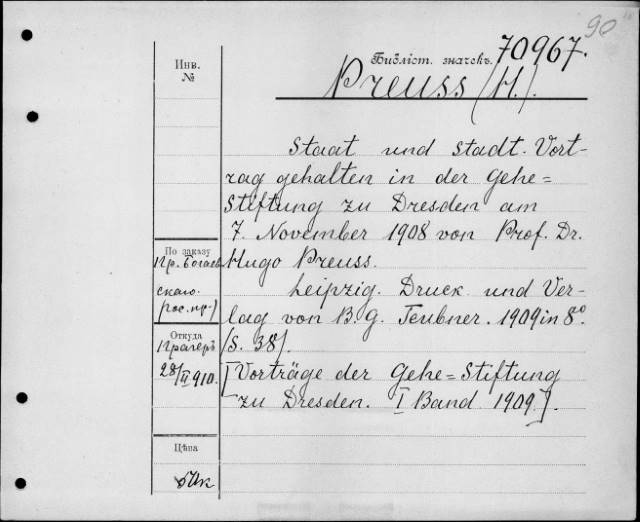 90
Инв.
№
Библіот. значекъ 70967.
Preuss (H.).
Staat und Stadt. Vort-
rag gehalten in der Gehe=
Stiftung zu Dresden am
7. November 1908 von Prof. Dr.
Hugo Preuss.
Leipzig. Druck und Ver-
lag von B. G. Teubner. 1909 in 8º.
(S. 38).
[Vorträge der Gehe=Stiftung
zu Dresden. I Band 1909].
По заказу
скаго.
Откуда
28/II 910.
Цѣна